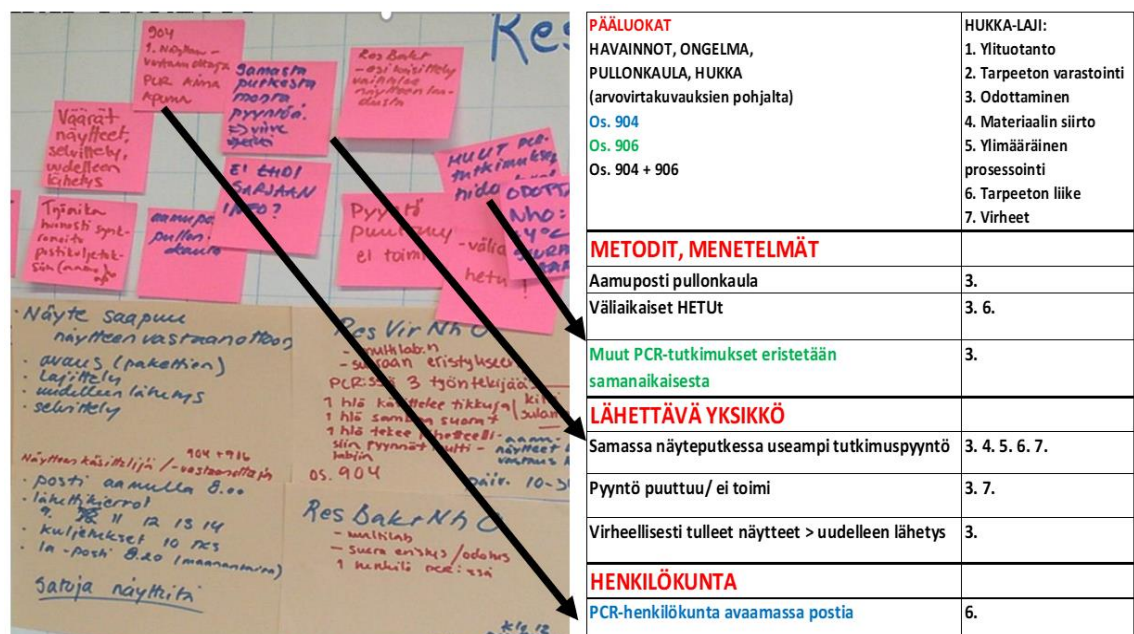 Res
904
1. Näytteen-
vastaanottaja
PCR aina
apuna
Samasta
putkesta
monta
pyyntöä.
=> viive
Res Bakt
- esikäsittely
vaihtelee
näytteen laa-
dusta
Väärät
näytteet,
selvittely,
uudelleen
lähetys
EI EHDI
SARJAAN
INFO?
MUUT PCR-
tutkimukse
hida
ODOTTA
Nho:
Työaika
huonosti synk-
ronoitu
postikuljetuk-
siin (aamu)
aamupo
pullon-
kaula
Pyyntö
puuttuu/
ei toimi
- välia
hetu
!
• Näyte saapuu
näytteen vastaanottoon
• avaus (pakettien)
• lajittely
• uudelleen lähetys
• selvittely
904 + 906
Näytteen käsittelijä / -vastaanottaja
• posti aamulla 8.00
• lähettikierrot
9. 11 12 13 14
• kuljetukset 10
• la-posti 8.20 (maanantaina)
Satoja näytteitä
Res Vir Nh O
- multilab:n
- suoraan eristykseen
PCR:ssä 3 työntekijää
1 hlö käsittelee tikkuja/
1 hlö
1 hlö tekee
pyynnöt multi-
labiin
os. 904
aam-
näytteet
vastaus
päiv. 10-
Res Bakt Nh O
- multilab
- suora eristys/odotus
1 henkilö PCR:ssä
PÄÄLUOKAT
HAVAINNOT, ONGELMA,
PULLONKAULA, HUKKA
(arvovirtakuvauksien pohjalta)
Os. 904
Os. 906
Os. 904 + 906
HUKKA-LAJI:
1. Ylituotanto
2. Tarpeeton varastointi
3. Odottaminen
4. Materiaalin siirto
5. Ylimääräinen
prosessointi
6. Tarpeeton liike
7. Virheet
METODIT, MENETELMÄT
Aamuposti pullonkaula 3.
Väliaikaiset HETUt 3. 6.
Muut PCR-tutkimukset eristetään 3.
samanaikaisesta
LÄHETTÄVÄ YKSIKKÖ
Samassa näyteputkessa useampi tutkimuspyyntö 3. 4. 5. 6. 7.
Pyyntö puuttuu/ ei toimi 3. 7.
Virheellisesti tulleet näytteet > uudelleen lähetys 3.
HENKILÖKUNTA
PCR-henkilökunta avaamassa postia 6.